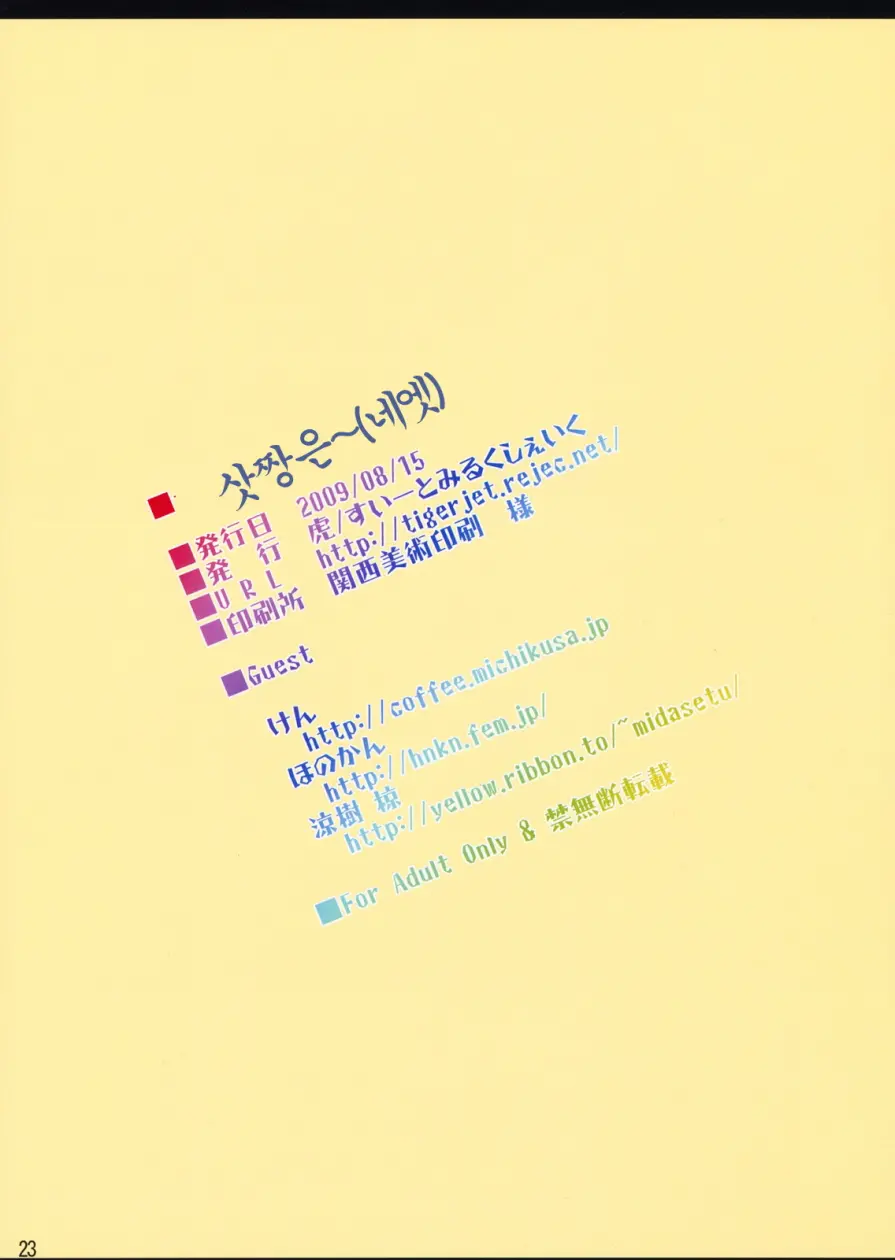 ■ 삿짱은~(네엣)
■発行日 2009/08/15
■発 行 虎/すいーとみるくしぇいく
■URL http://tigerjet.rejec.net/
■印刷所 関西美術印刷 様
■Guest
けん
http://coffee.michikusa.jp
ほのかん
http://hnkn.fem.jp/
涼樹 椋
http://yellow.ribbon.to/~midasetu/
■For Adult Only & 禁無断転載
23